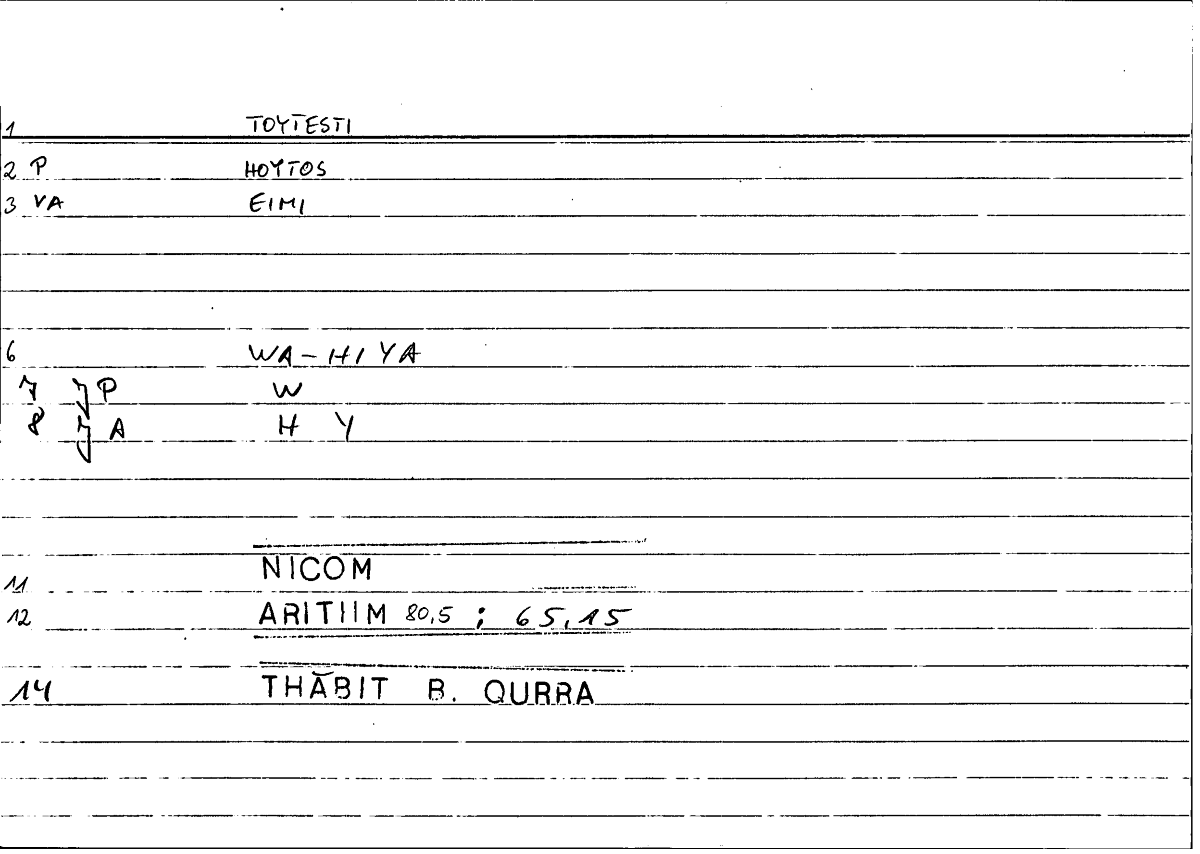 1 TOYTESTI
2 P HOYTOS
3 VA EIMI
6 WA-HIYA
7 JP W
8 JA H Y
11 NICOM
12 ARITIIM 80,5 ; 65,15
14 THĀBIT B. QURRA